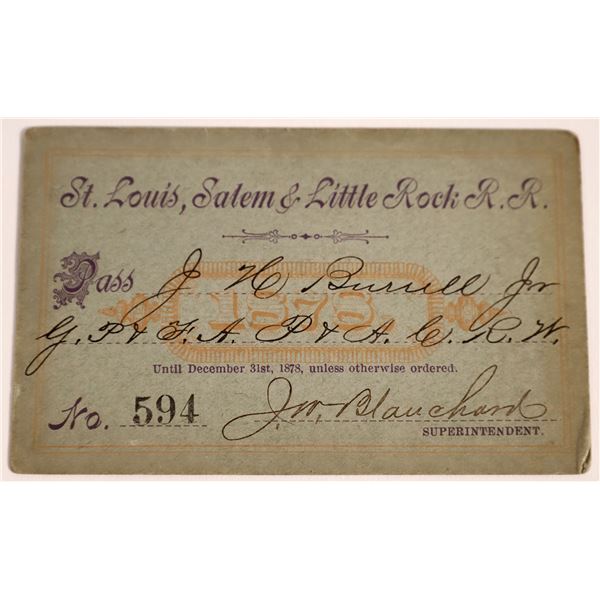 St. Louis, Salem & Little Rock R. R.
Pass J H Burrell Jr
1878.
G. P & F. A. P & A. C. R. W.
Until December 31st, 1878, unless otherwise ordered.
No. 594 J. W. Blanchard
SUPERINTENDENT.